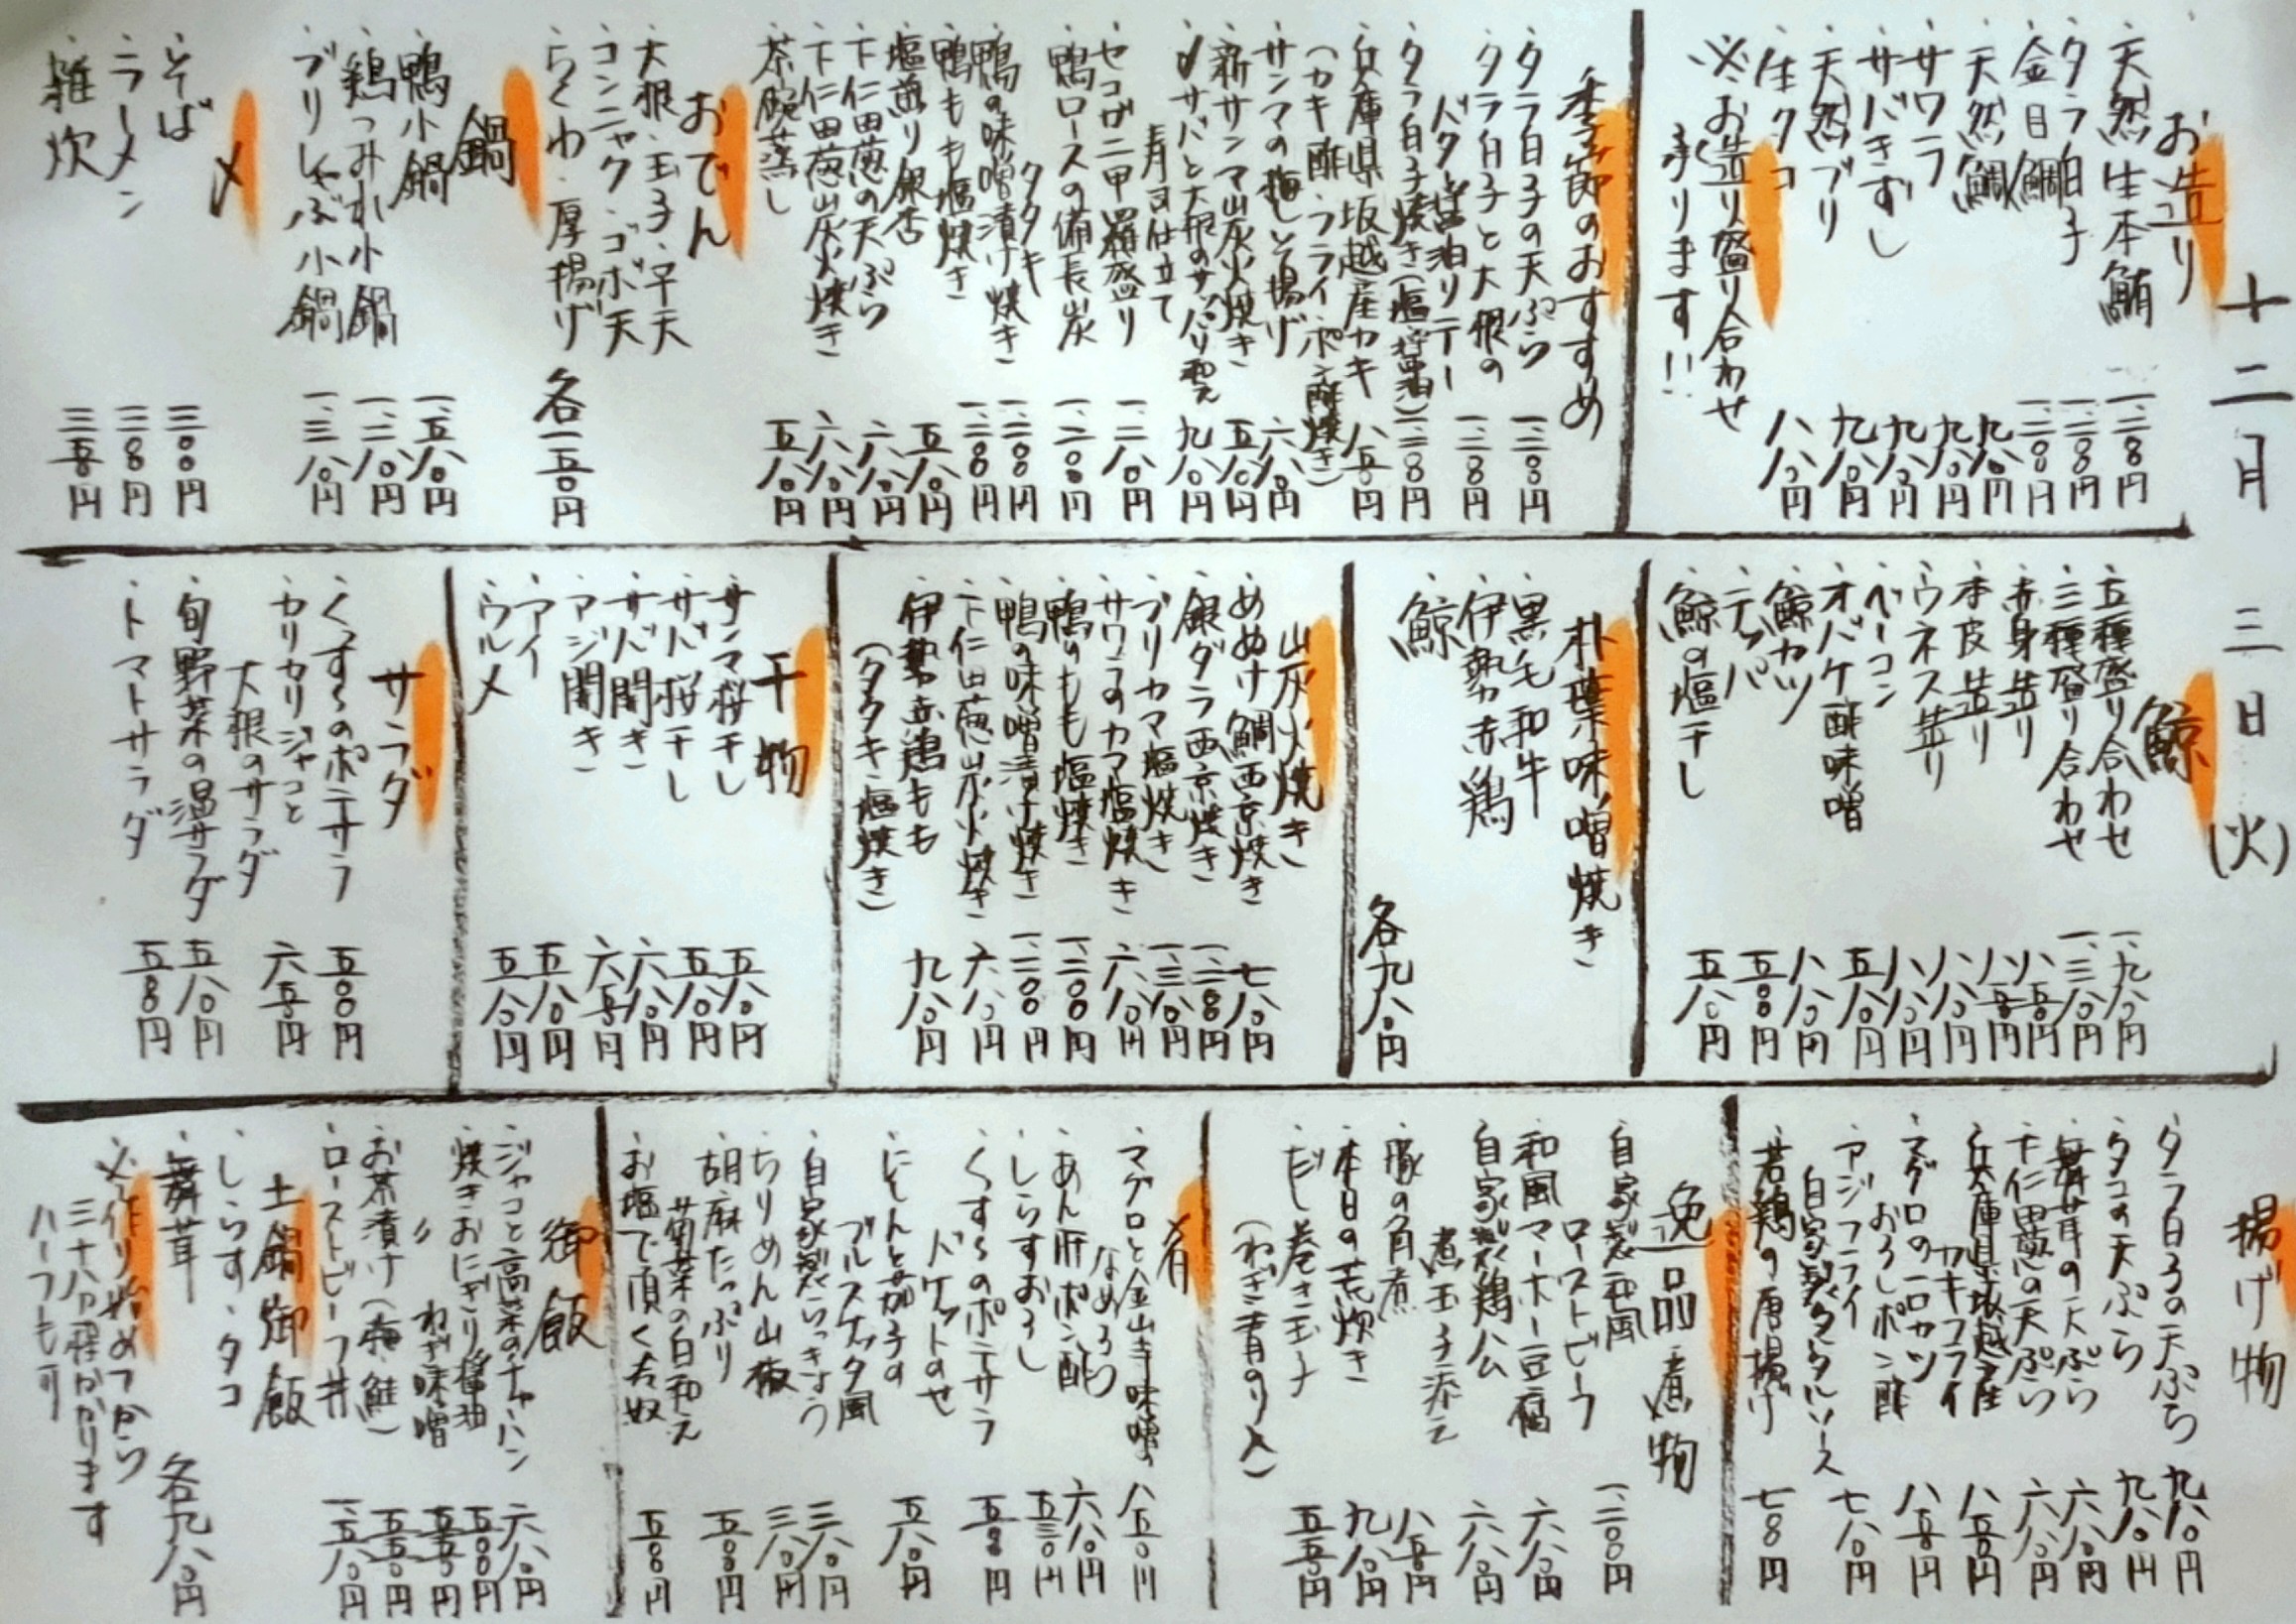 十二月三日(火)
お造り
・天然生本鮪 一、二八〇円
・タラ白子 一、二八〇円
・金目鯛 一、二八〇円
・天然鯛 九八〇円
・サワラ 九八〇円
・サバきずし 九八〇円
・天然ブリ 九八〇円
・生タコ 八八〇円
※お造り盛り合わせ
承ります!!
季節のおすすめ
・タラ白子の天ぷら
・タラ白子と大根の
バター醤油ソテー
・タラ白子焼き(塩・醤油)
・兵庫県坂越産カキ 八五〇円
(カキ酢・フライ・ポン酢焼き)
・サンマの梅しそ揚げ 六八〇円
・新サンマ山炭火焼き 五八〇円
・〆サバと大根のサッパリ和え 九八〇円
寿司仕立て
・セコガニ甲羅盛り
・鴨ロースの備長炭
タタキ 一、二〇〇円
・鴨の味噌漬け焼き 一、二〇〇円
・鴨もも塩焼き 一、二〇〇円
・塩煎り銀杏 五八〇円
・下仁田葱の天ぷら 六八〇円
・下仁田葱山炭火焼き 六八〇円
・茶碗蒸し 五八〇円
おでん
・大根・玉子・平天
・コンニャク・ゴボ天
・ちくわ・厚揚げ 各一五〇円
鍋
・鴨小鍋 一、五八〇円
・鶏つみれ小鍋 一、二八〇円
・ブリしゃぶ小鍋 一、三八〇円
〆
・そば 三〇〇円
・ラーメン 三八〇円
・雑炊 三五〇円
鯨
・五種盛り合わせ 一、九八〇円
・三種盛り合わせ 一、三八〇円
・赤身造り 八五〇円
・本皮造り 八五〇円
・ウネス造り 八八〇円
・ベーコン 八八〇円
・オバケ酢味噌 五八〇円
・鯨カツ 八八〇円
・テッパ 五五〇円
・鯨の塩干し 五八〇円
朴葉味噌焼き
・黒毛和牛
・伊勢赤鶏
・鯨 各九八〇円
山炭火焼き
・めぬけ鯛西京焼き 七八〇円
・銀ダラ西京焼き 一、二八〇円
・ブリカマ塩焼き 一、三八〇円
・サワラのカマ塩焼き 六八〇円
・鴨のもも塩焼き 一、二〇〇円
・鴨の味噌漬け焼き 一、二〇〇円
・下仁田葱山炭火焼き 六八〇円
・伊勢赤鶏もも 九八〇円
(タタキ・塩焼き)
干物
・サンマ桜干し 五八〇円
・サバ桜干し 五八〇円
・サバ開き 六八〇円
・アジ開き 六五〇円
・アイ 五八〇円
・ウルメ 五八〇円
サラダ
・くずし〜のポテサラ 五〇〇円
・カリカリジャコと
大根のサラダ 六五〇円
・旬野菜の温サラダ 五八〇円
・トマトサラダ 五五〇円
揚げ物
・タラ白子の天ぷら 九八〇円
・タコの天ぷら 九八〇円
・舞茸の天ぷら 六八〇円
・下仁田葱の天ぷら 六八〇円
・兵庫県坂越産
カキフライ 八五〇円
・マグロの一口カツ
おろしポン酢 八五〇円
・アジフライ
自家製タルタルソース 七八〇円
・若鶏の唐揚げ 七八〇円
逸品煮物
・自家製和風
ローストビーフ 一、二〇〇円
・和風マーボー豆腐 六八〇円
・自家製鶏公
煮玉子添え 六八〇円
・豚の角煮 八五〇円
・本日の荒炊き 九八〇円
・だし巻き玉子 五五〇円
(ねぎ・青のり入)
肴
・マグロと金山寺味噌の
なめろう 八五〇円
・あん肝ポン酢 六八〇円
・しらすおろし 五三〇円
・くずし〜のポテサラ
バケットのせ 五五〇円
・にしんと茄子の
ブルスケッタ風 五八〇円
・自家製らっきょう 三八〇円
・ちりめん山椒 三八〇円
・胡麻たっぷり
菊菜の白和え 五五〇円
・お塩で頂く冷奴 五五〇円
御飯
・ジャコと高菜のチャーハン 六八〇円
・焼きおにぎり醤油 五〇〇円
・〃 ねぎ味噌 五五〇円
・お茶漬け(梅・鮭) 五五〇円
・ローストビーフ丼 一、五八〇円
土鍋御飯
・しらす・タコ
・舞茸 各九八〇円
※作り始めてから
三十八分程かかります
ハーフも可